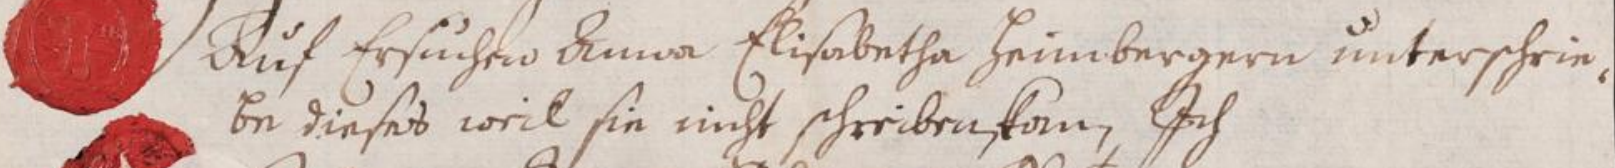 Auf Ersuchen Anna Elisabetha Heimbergern unterschrie,
be dieses weil sie nicht schreiben kan, Ich